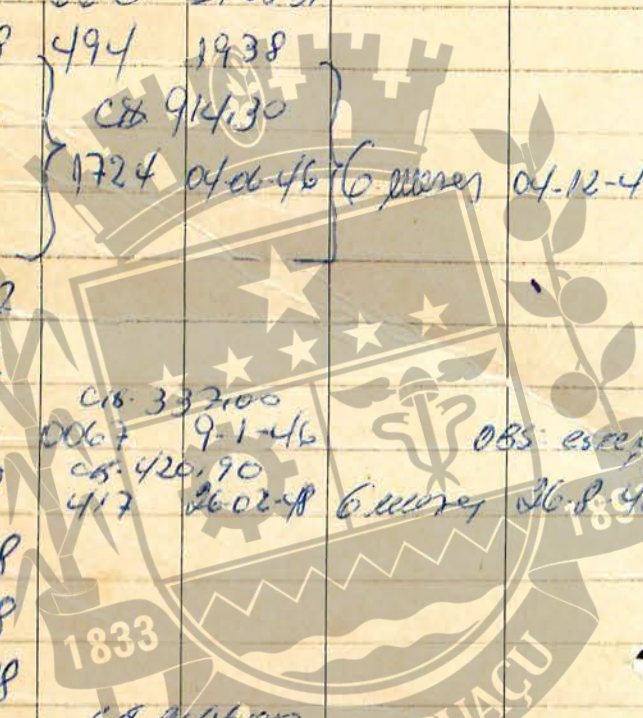 494 1938
Cr$ 914,30
1724 04-06-46 6 meses 04-12-4
Cr$. 337,00
0067 9-1-46 OBS:
Cr$. 420,90
417 26-02-48 6 meses 26-8-4
183
8
8
1833
8
UAÇU